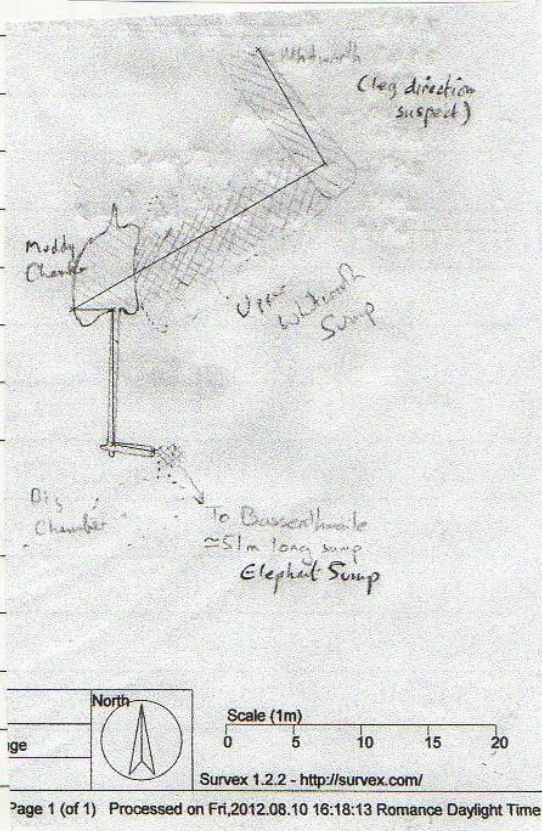 Whitworth
(leg direction
suspect)
Muddy
Chamber
Upper
Whitworth
Sump
Dig
Chamber
To Bassenthwaite
≈51m long sump
Elephant Sump
North
ge
Scale (1m)
0 5 10 15 20
Survex 1.2.2 - http://survex.com/
Page 1 (of 1) Processed on Fri,2012.08.10 16:18:13 Romance Daylight Time